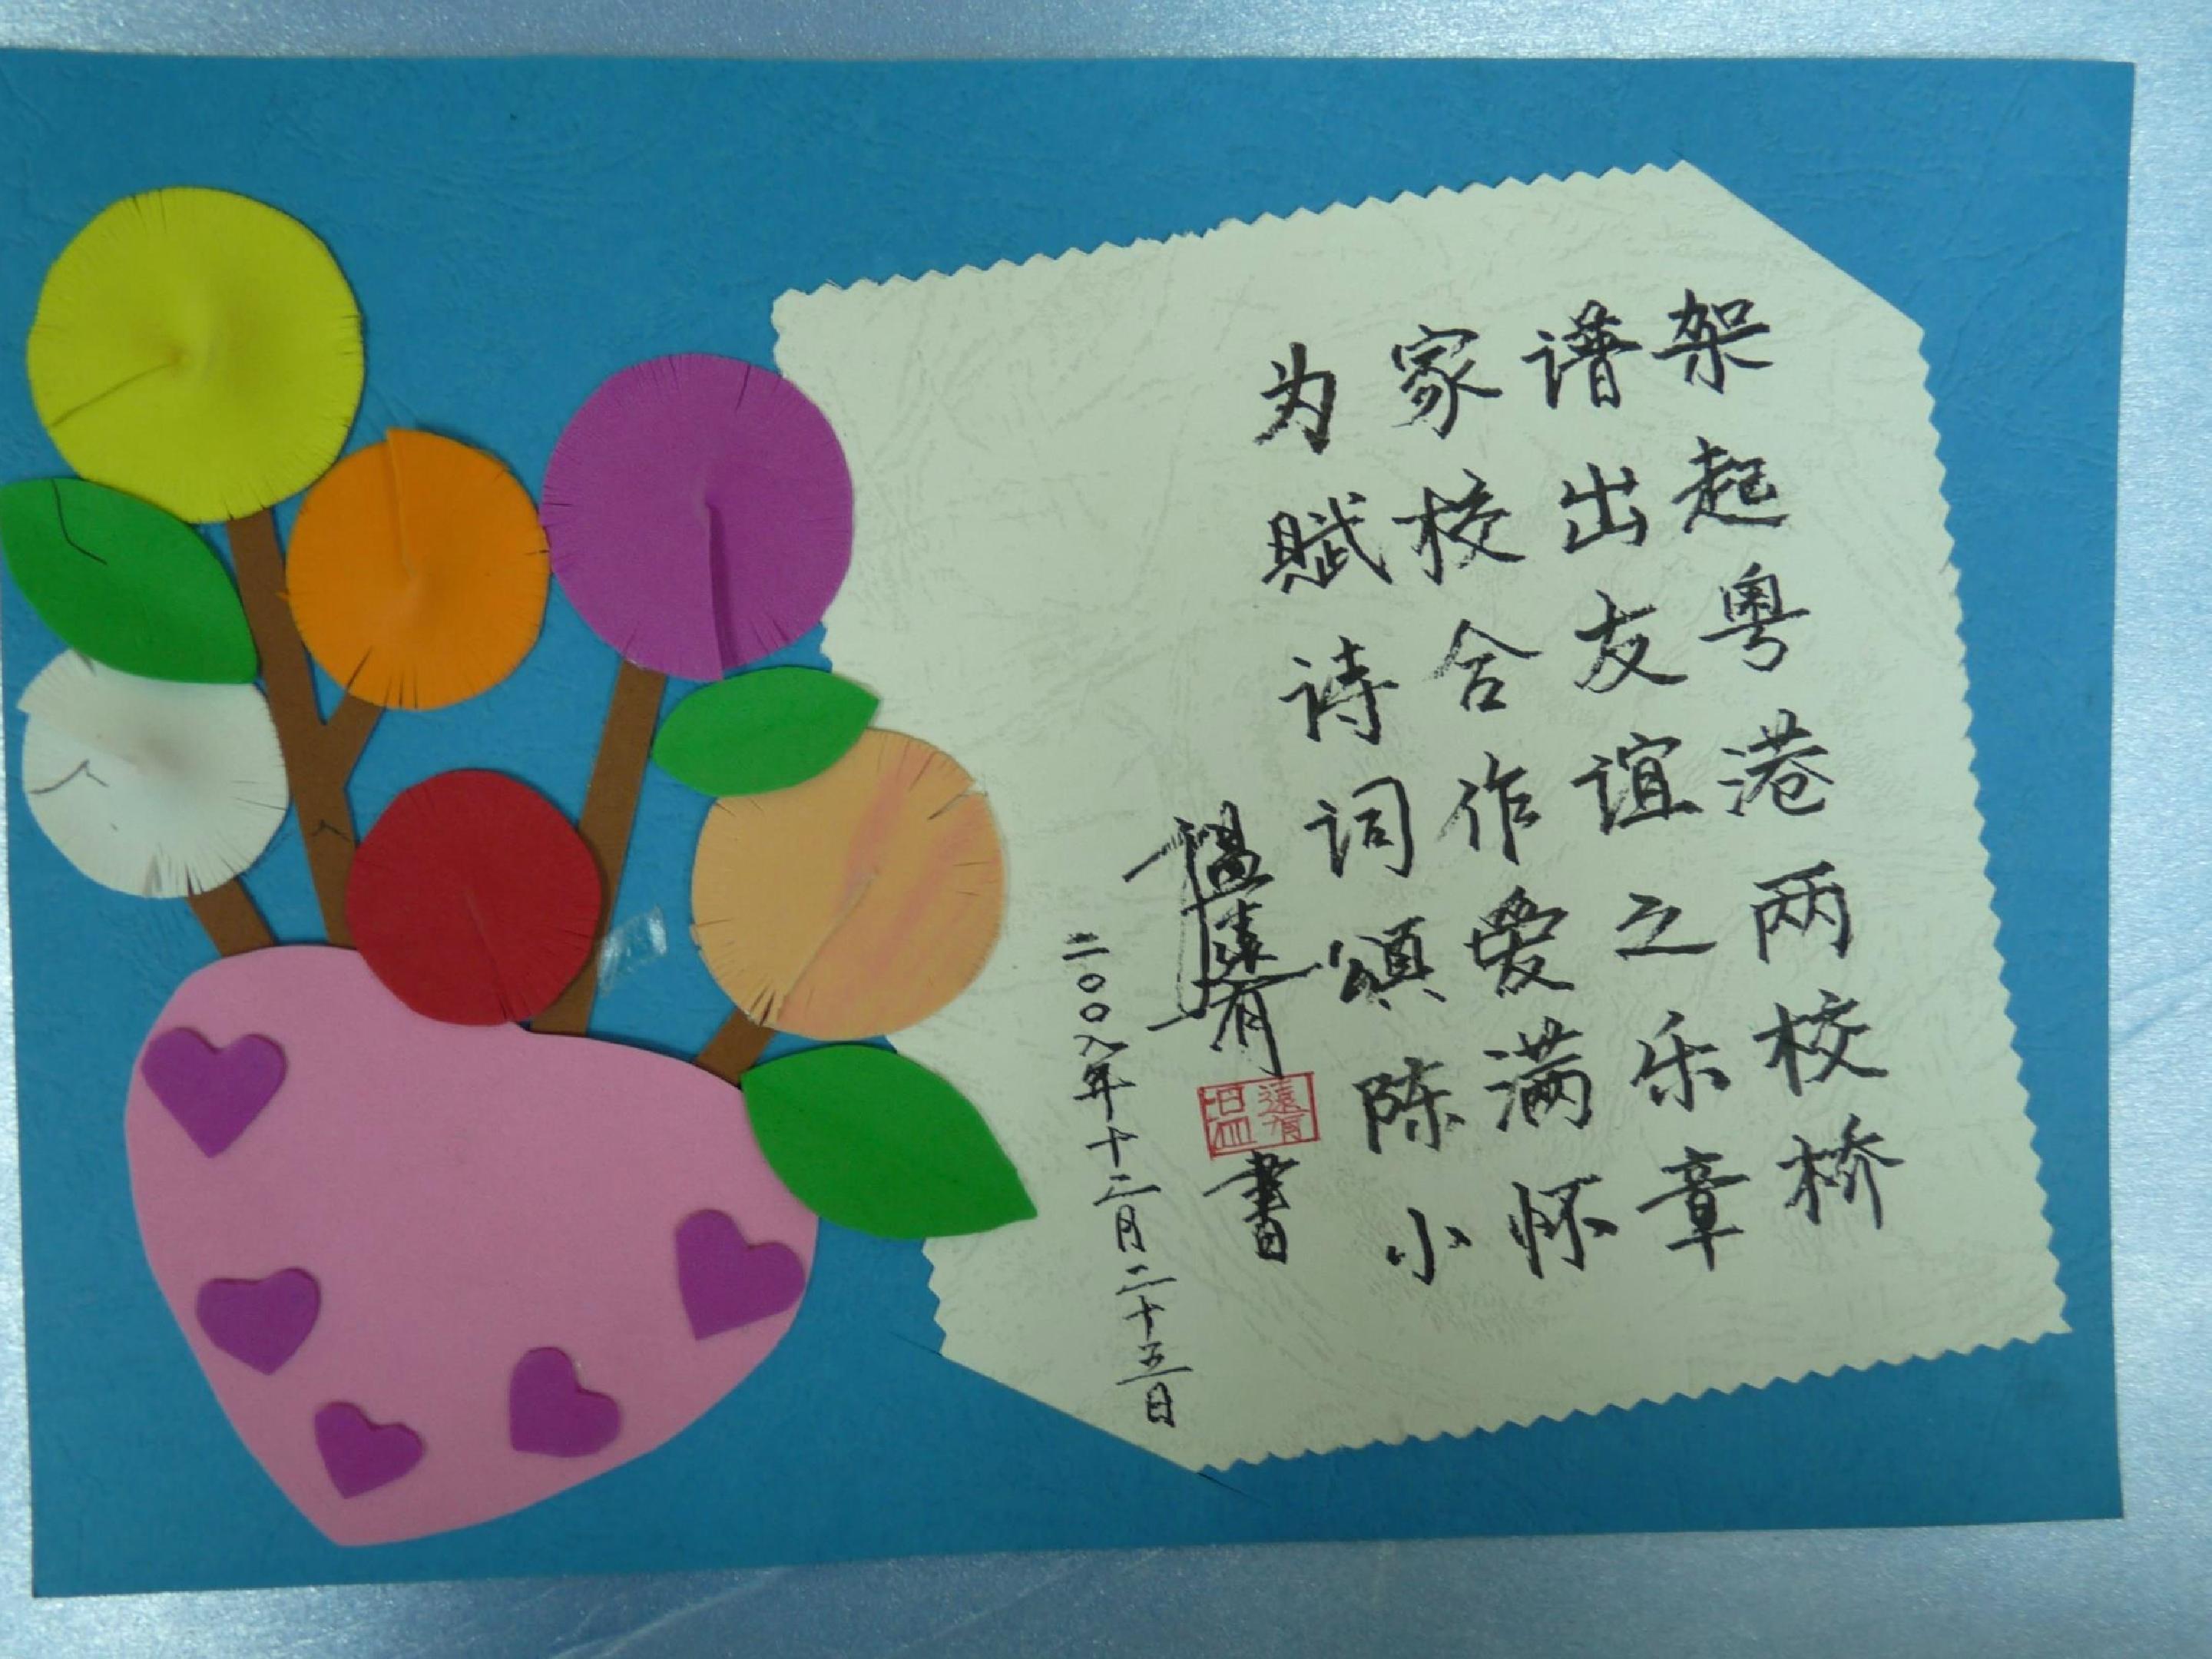 架起粤港两校桥
谱出友谊之乐章
家校合作爱满怀
为赋诗词颂陈小
温远有
遠有
温
書
二〇〇八年十二月二十五日